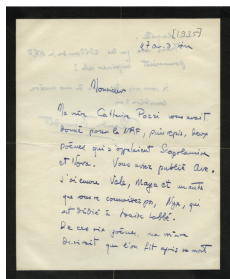 [1935?]
Monsieur
Ma mère Catherine Pozzi vous avait
donné pour la NRF, puis repris, deux
poèmes qui s'appelaient Scopolamine
et Nova. Vous aviez publié Ave.
J'ai encore Vale, Maya et un autre
que vous ne connaissez pas, Nyx, qui
est dédié à Louise Labbé.
De ces six poèmes, ma mère
désirait que l'on fît après sa mort